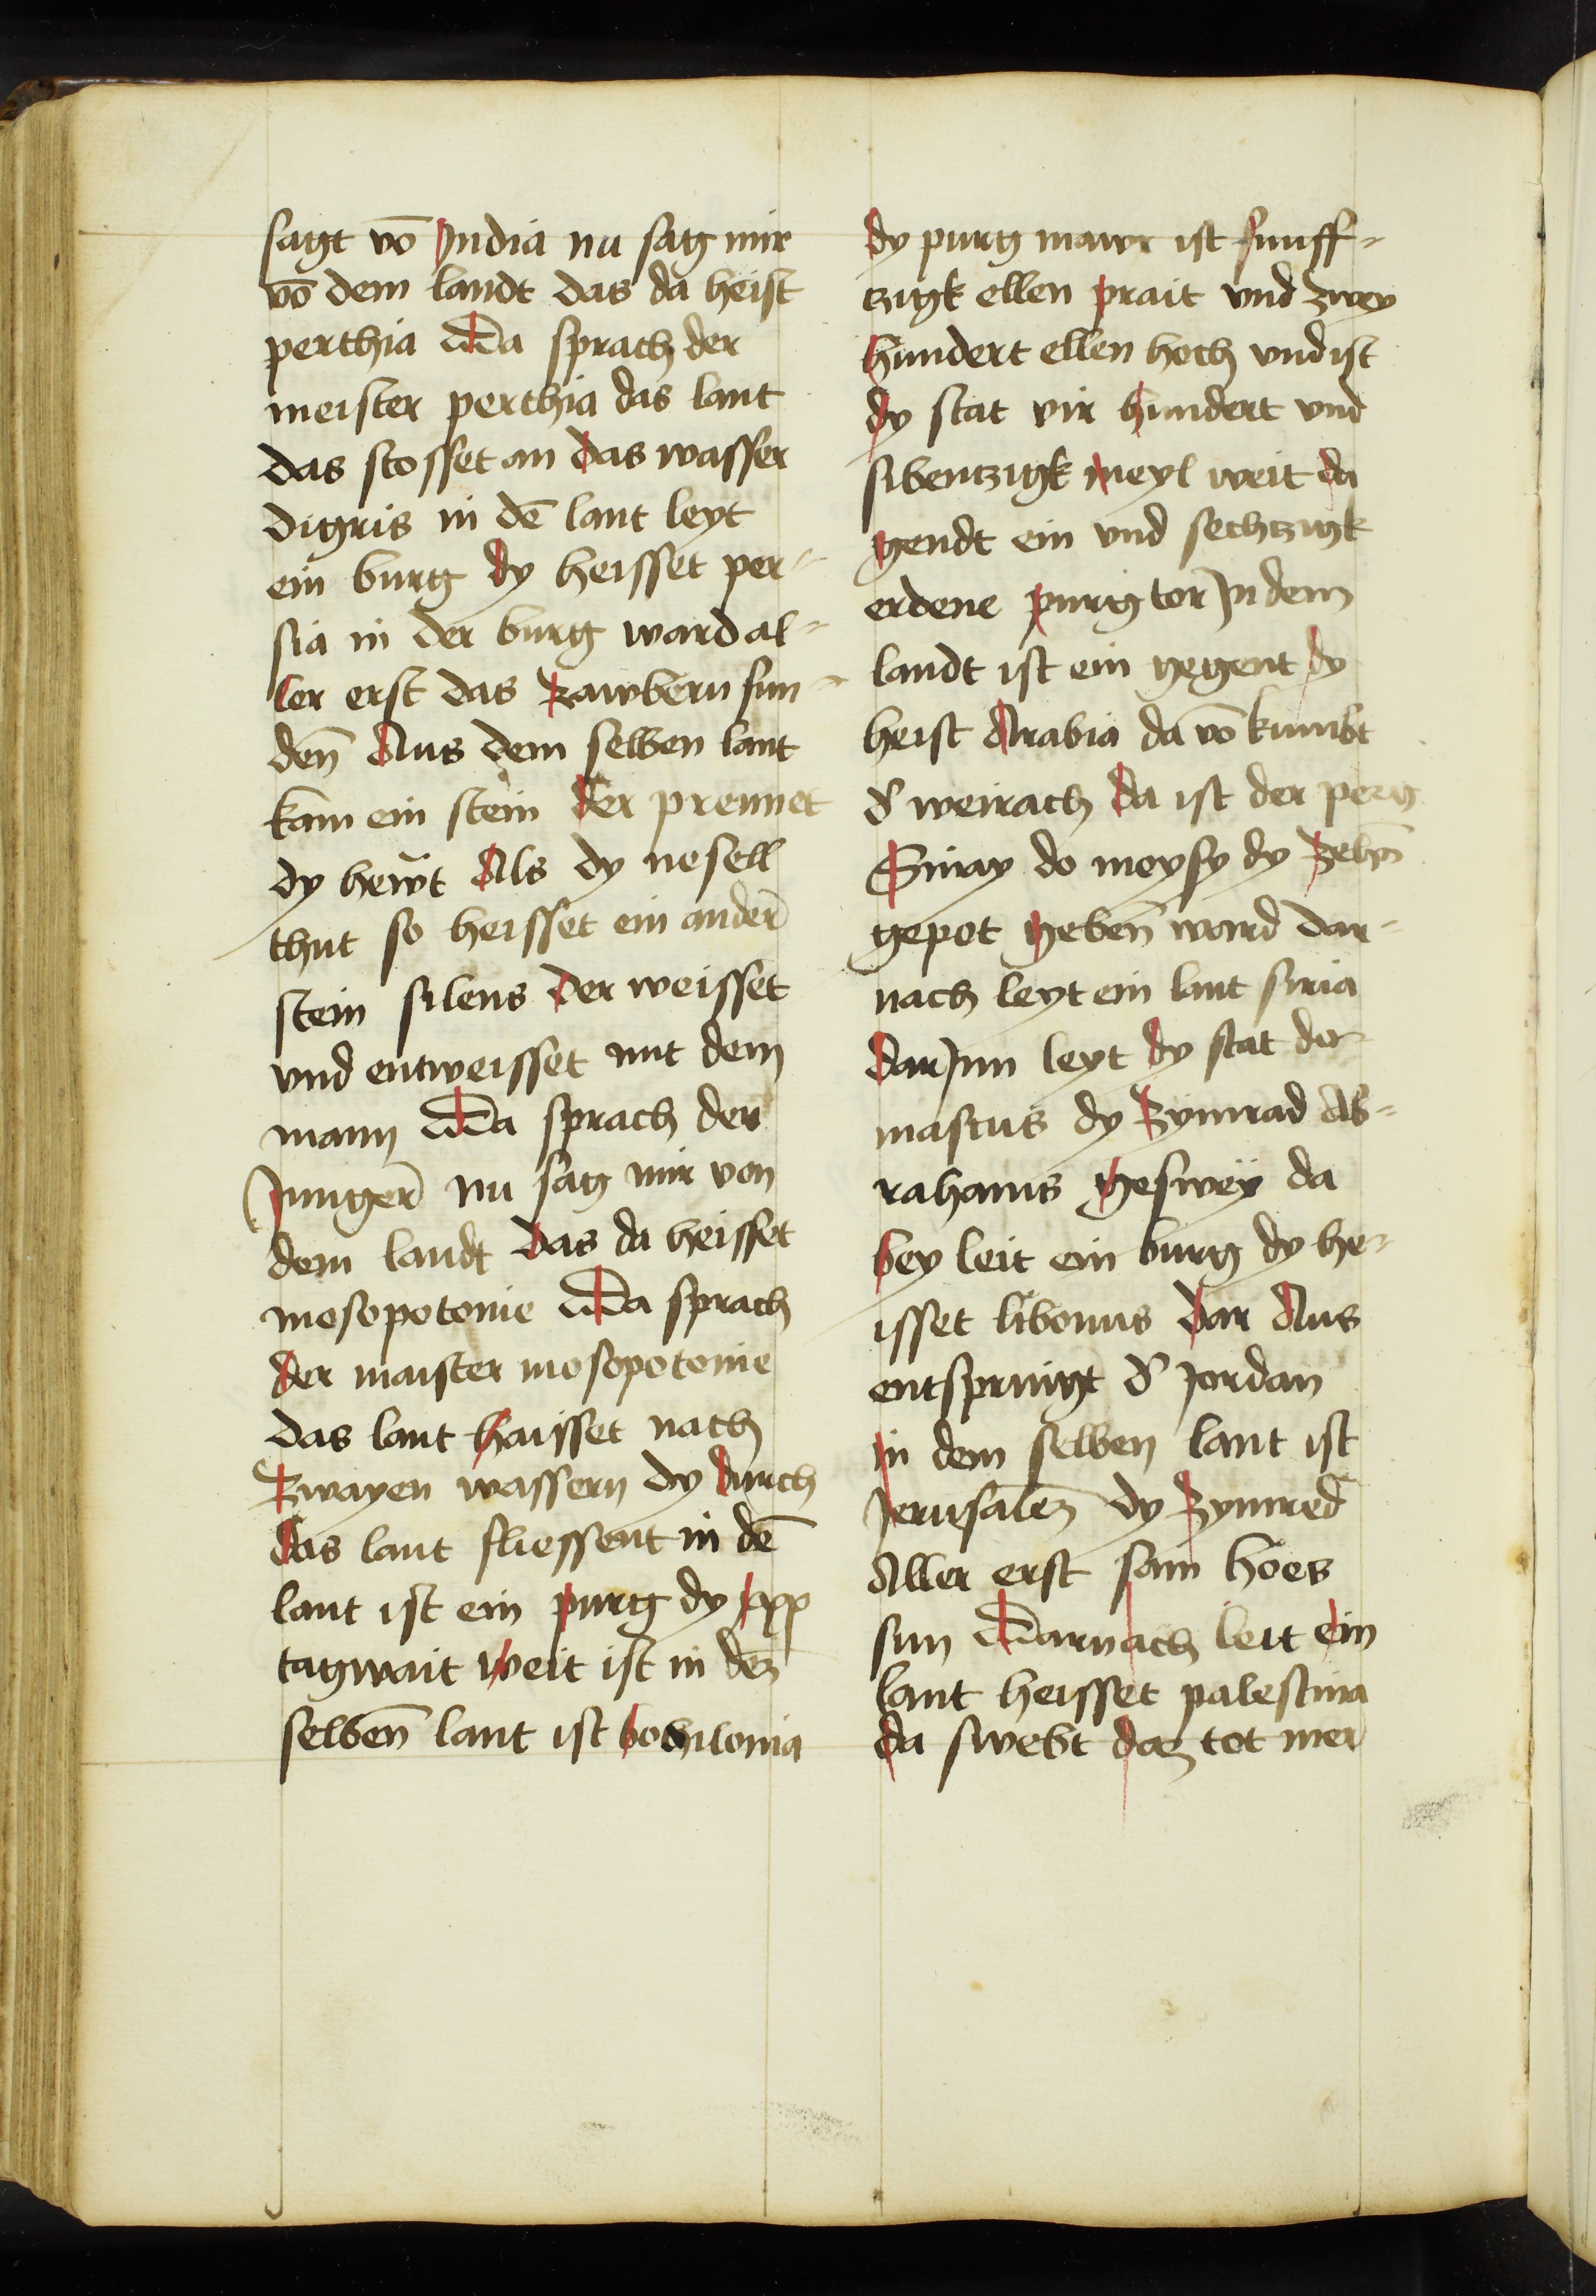 sagt vō India nu sag mir
vō dem landt das da heist
perthia Da sprach der
meister perthia das lant
das stosset an das wasser
digris in dē lant leyt
ein burg dy heisset per-
sia in der burg ward al-
ler erst das zawbern fun-
den̄ Aus dem selben lant
kam ein stein der prennet
dy hewt Als dy nesell
thut so heisset ein ander̄
stein silens der weisset
vnd entweisset mit dem
mann Da sprach der
Junger̄ nu sag mir von
dem landt das da heisset
mosopotonie Da sprach
der maister mosopotonie
das lant haisset nach
zwayen wassern dy durch
das lant fliessent in dē
lant ist ein purg dy xpp
tagwait weit ist in dez
selben̄ lant ist bobilonia
dy purg mawr ist funff-
tzigk ellen prait vnd zwey
hundert ellen hoch vnd ist
dy stat vir hundert vnd
sibentzigk meyl weit da
gendt ein vnd sechtzigk
erdene purg tor In dem
landt ist ein gegent dy
heist Arabia da vō kumbt
d' weirach da ist der perg
Sinay do moysy dy zehn̄
gepot geben̄ ward dar-
nach leyt ein lant siria
dar Inn leyt dy stat da-
mascus dy zymrad Ab-
rahams geswey da
bey leit ein burg dy he-
isset libonus dar Aus
entspringt d' Jordan
in dem selben lant ist
Jerusalem dy zymred
Aller erst sam hoes
sun Darnach leit ein
lant heisset palestina
da swebt daz tot mer